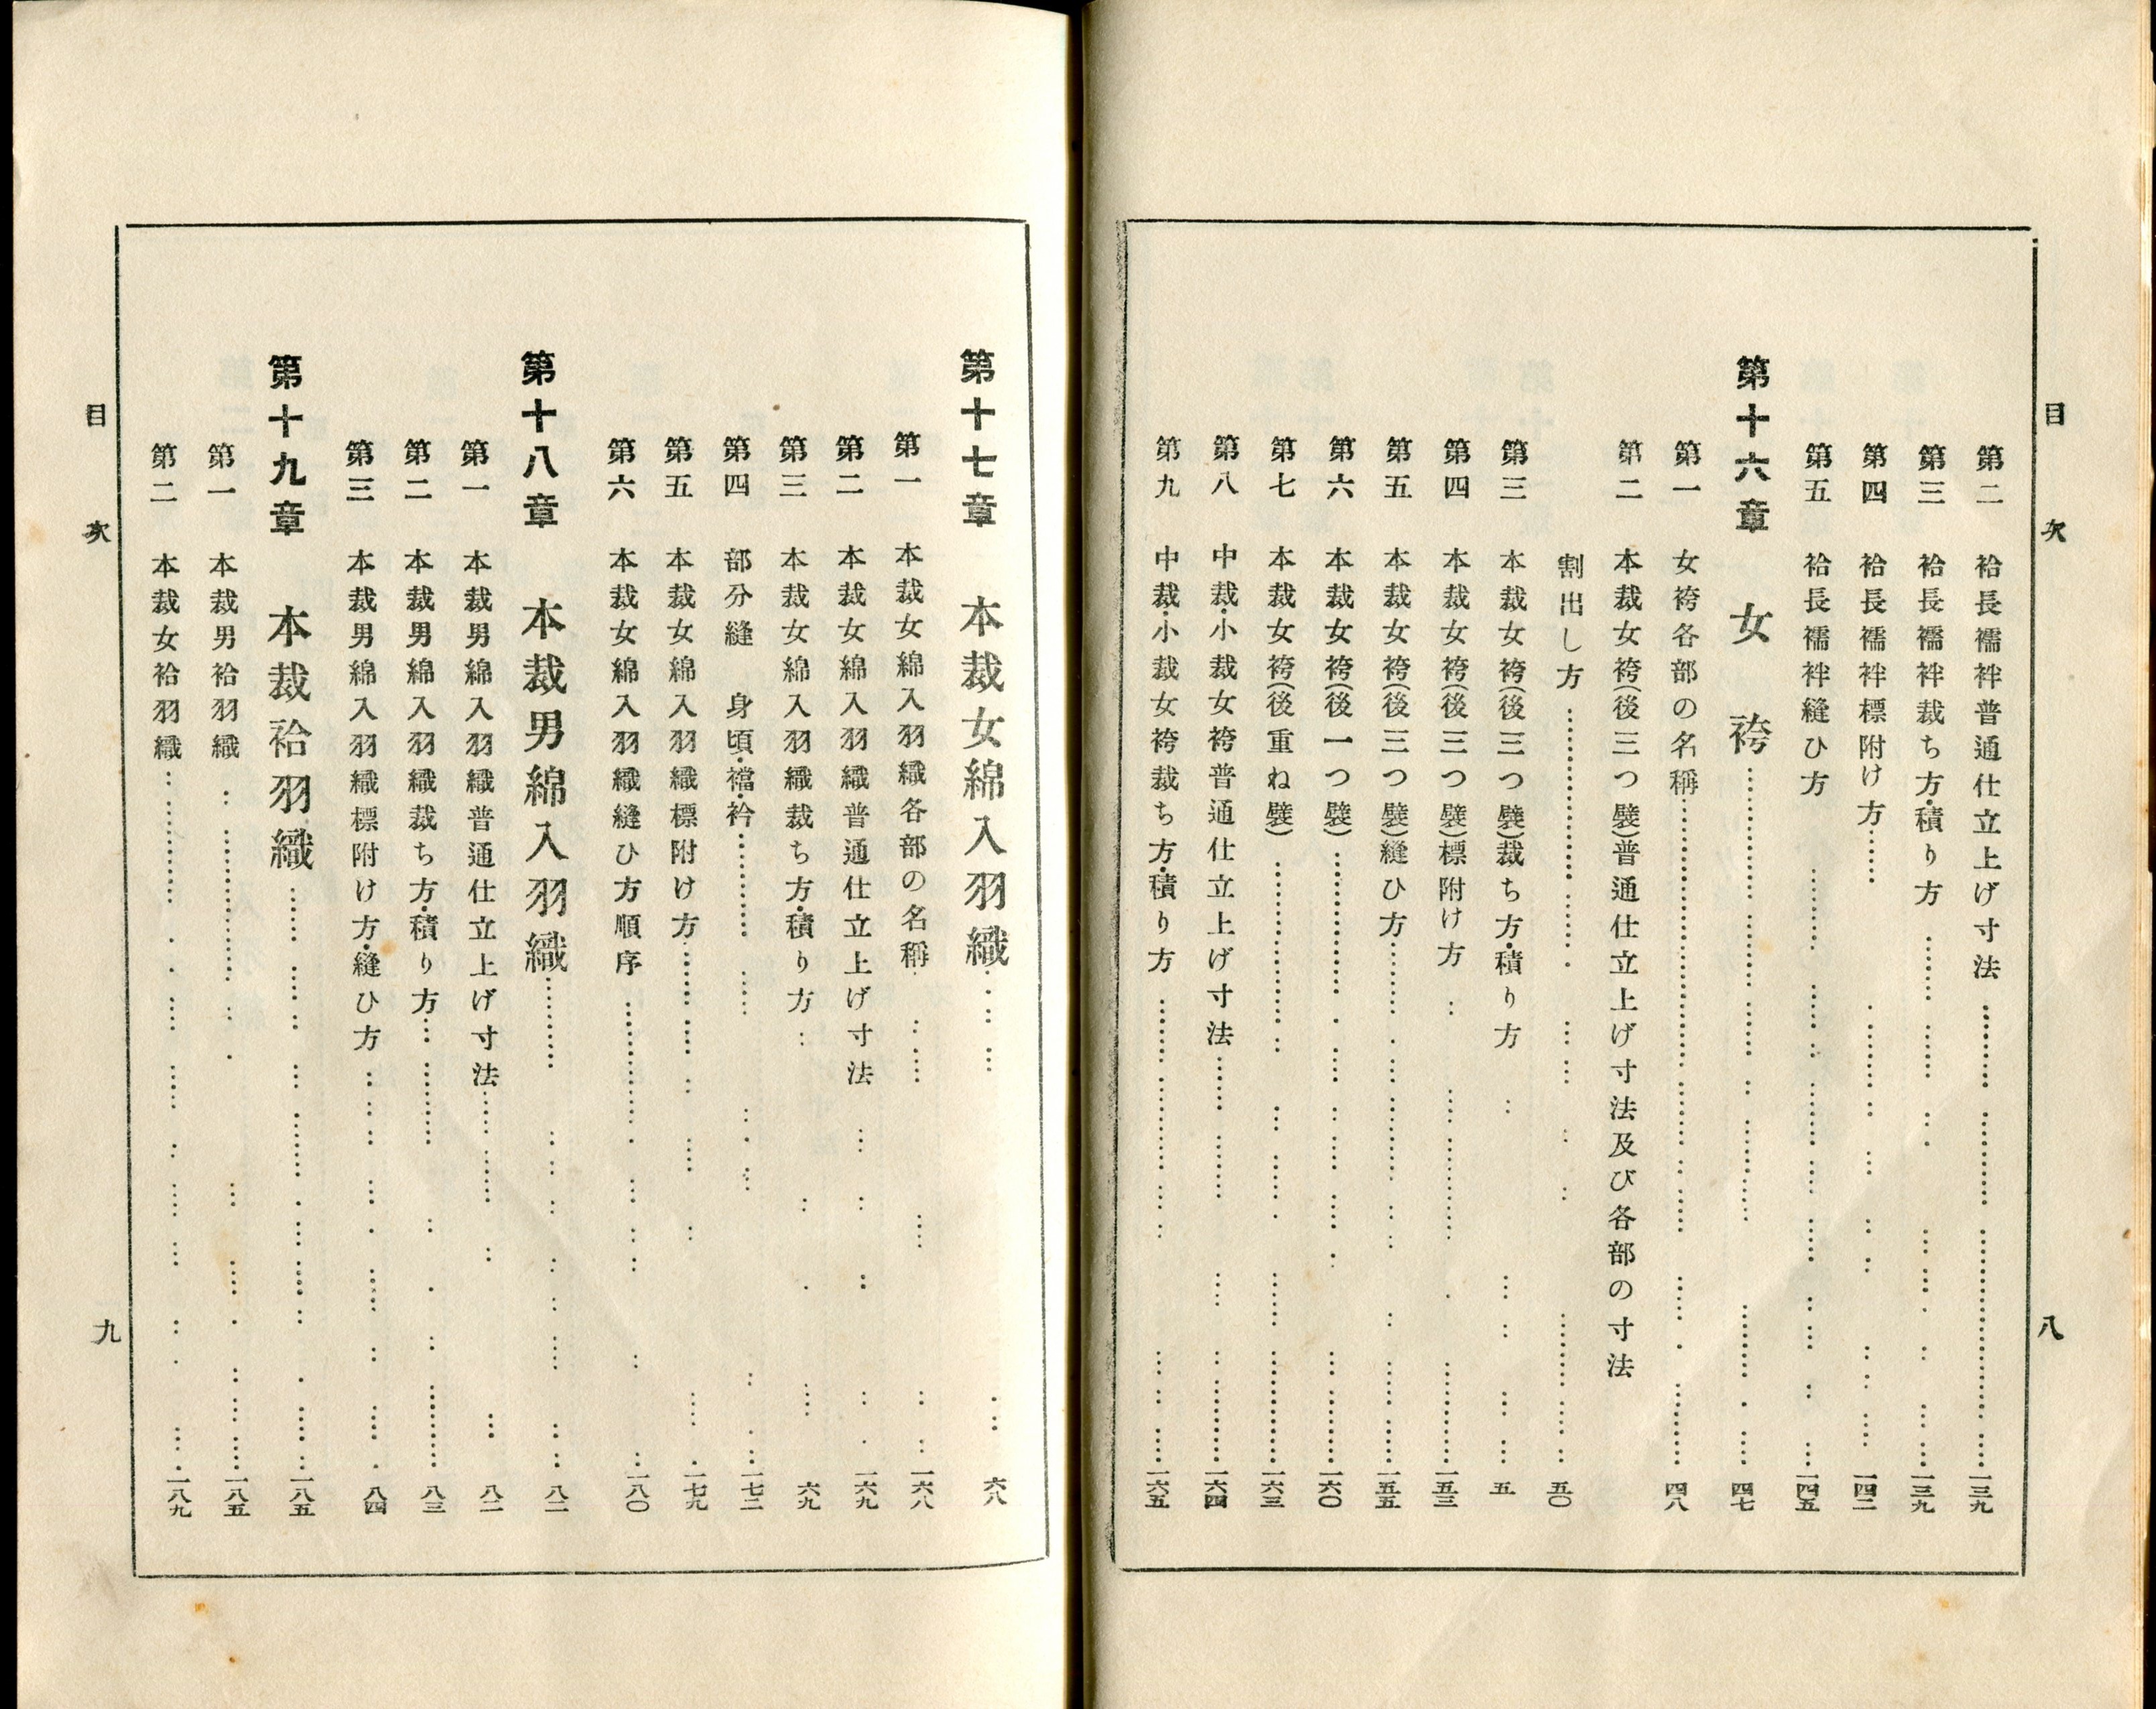 目次 八
第二 袷長襦袢普通仕立上げ寸法……一三九
第三 袷長襦袢裁ち方・積り方……一三九
第四 袷長襦袢標附け方……一四二
第五 袷長襦袢縫ひ方……一四五
第十六章 女袴……四七
第一 女袴各部の名稱……四八
第二 本裁女袴(後三つ襞)普通仕立上げ寸法及び各部の寸法
割出し方……五〇
第三 本裁女袴(後三つ襞)裁ち方・積り方……五
第四 本裁女袴(後三つ襞)標附け方……一五三
第五 本裁女袴(後三つ襞)縫ひ方……一五五
第六 本裁女袴(後一つ襞)……一六〇
第七 本裁女袴(後重ね襞)……一六三
第八 中裁・小裁女袴普通仕立上げ寸法……一六四
第九 中裁・小裁女袴裁ち方・積り方……一六五
第十七章 本裁女綿入羽織……六八
第一 本裁女綿入羽織各部の名稱……一六八
第二 本裁女綿入羽織普通仕立上げ寸法……一六九
第三 本裁女綿入羽織裁ち方・積り方……六九
第四 部分縫 身頃・襠・衿……一七二
第五 本裁女綿入羽織標附け方……一七九
第六 本裁女綿入羽織縫ひ方順序……一八〇
第十八章 本裁男綿入羽織……八二
第一 本裁男綿入羽織普通仕立上げ寸法……八二
第二 本裁男綿入羽織裁ち方・積り方……八三
第三 本裁男綿入羽織標附け方・縫ひ方……八四
第十九章 本裁袷羽織……一八五
第一 本裁男袷羽織……一八五
第二 本裁女袷羽織……一八九
目次 九